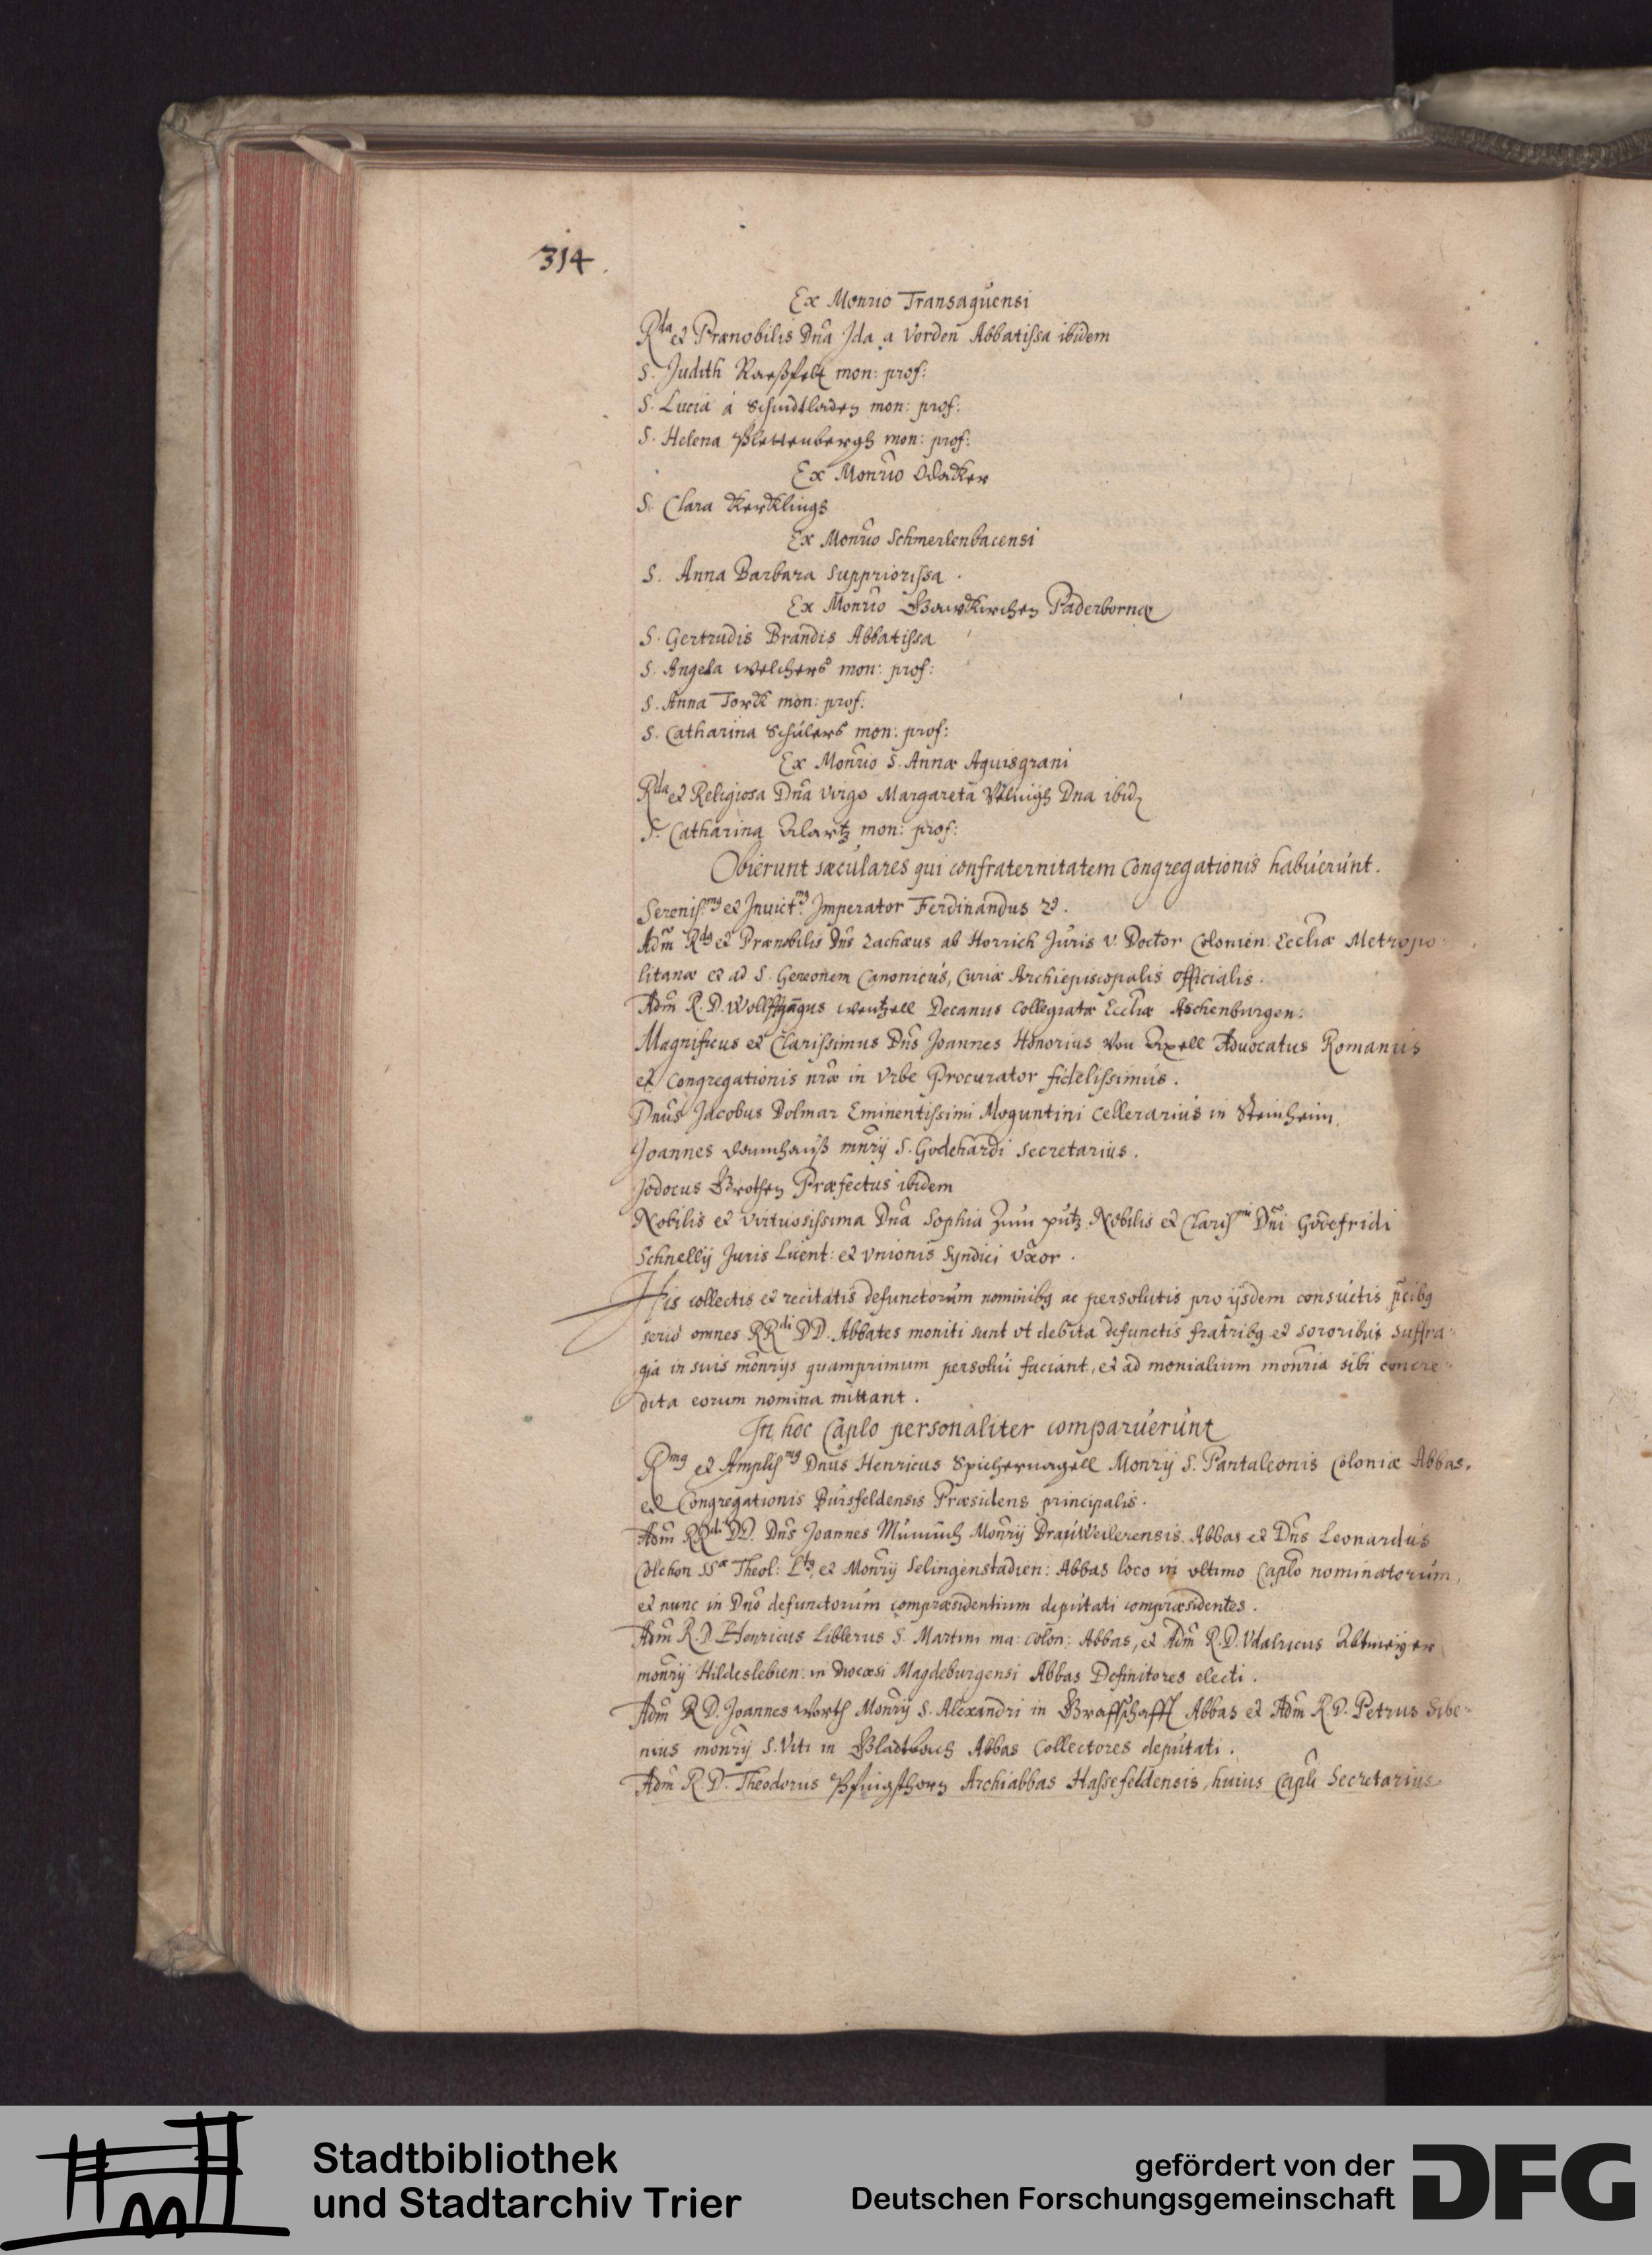 314.
Ex Monrio Transaquensi
Rda et Prænobilis Dna Ida a Vorden Abbatissa ibidem
S. Judith Raeßfelt mon: prof:
S. Lucia á Schudtladen mon: prof:
S. Helena Plettenbergh mon: prof:
Ex Monrio Odacker
S. Clara Kercklings
Ex Monrio Schmerlenbacensi
S. Anna Barbara Suppriorissa.
Ex Monrio Gawkirchen Paderbornæ
S. Gertrudis Brandis Abbatissa
S. Angela Welchers mon: prof:
S. Anna Torck mon: prof:
S. Catharina Schülers mon: prof:
Ex Monrio S. Annæ Aquisgrani
Rda et Religiosa Dna Virgo Margareta Dna ibid
S. Catharina Clartz mon: prof:
Obierunt sæculares qui confraternitatem Congregationis habuerunt.
Serenis.mg et Inuict.mg Imperator Ferdinandus 2d.
Adm Rdg et Prænobilis Dns Zachæus ab Horrich Juris V. Doctor Colonien: Eccliæ Metropo-
litanæ et ad S. Gereonem Canonicus, Curiæ Archiepiscopalis officialis.
Adm R. D. Wolffgangus Wentzell Decanus Collegiatæ Eccliæ Aschenburgen:
Magnificus et Clarissimus Dns Joannes Honorius von Axell Aduocatus Romanus
et Congregationis nræ in Vrbe Procurator fidelissimus.
Dnus Jacobus Dolmar Eminentissimi Moguntini Cellerarius in Steinheim.
Joannes Daumhauß mnrij S. Godehardi Secretarius.
Jodocus Grothen Præfectus ibidem
Nobilis et virtuosissima Dna Sophia Zum pütz Nobilis et Clarismi Dni Godefridi
Schnellij Juris Licent: et Vnionis Syndici Vxor.
His collectis et recitatis defunctorum nominibg ac persolutis pro ijsdem consuetis pcibg
serio omnes RRdi DD. Abbates moniti sunt vt debita defunctis fratribg et sororibus suffra-
gia in suis monrijs quamprimum persolui faciant, et ad monialium monria sibi concre-
dita eorum nomina mittant.
In hoc Caplo personaliter comparuerunt
Rmg et Amplismg Dnus Henricus Spichernagell Monrij S. Pantaleonis Coloniæ Abbas,
et Congregationis Bursfeldensis Præsidens principalis.
Adm RRdi DD. Dns Joannes Münnich Monrij Brauweilerensis Abbas et Dns Leonardus
Colchon SSæ Theol: Ltg, et Monrij Selingenstadien: Abbas loco in vltimo Caplo nominatorum,
et nunc in Dno defunctorum compræsidentium deputati compræsidentes.
Adm R. D. Henricus Liblerus S. Martini ma: Colon: Abbas, et Adm R. D. Vdalricus Altmeijer
monrij Hildeslebien: in Diocæsi Magdeburgensi Abbas Definitores electi.
Adm R D. Joannes Worth Monrij S. Alexandri in Graffschafft Abbas et Adm R. D. Petrus Sibe-
nius monrij S. Viti in Gladtbach Abbas Collectores deputati.
Adm R. D. Theodorus Pfingsthorn Archiabbas Hassefeldensis, huius Capli Secretarius
Stadtbibliothek
und Stadtarchiv Trier
gefördert von der
Deutschen Forschungsgemeinschaft
DFG